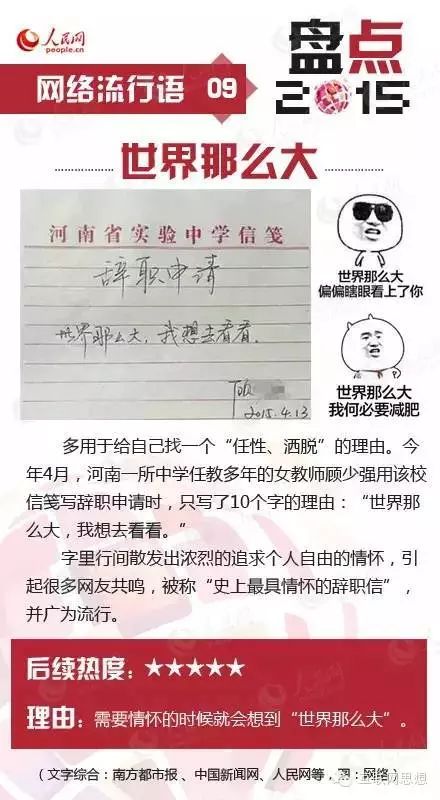 人民网
people.cn
盘点
2015
网络流行语 09
世界那么大
河南省实验中学信笺
辞职申请
世界那么大,我想去看看。
2015.4.13
世界那么大
偏偏瞎眼看上了你
世界那么大
我何必要减肥
多用于给自己找一个“任性、洒脱”的理由。今
年4月,河南一所中学任教多年的女教师顾少强用该校
信笺写辞职申请时,只写了10个字的理由:“世界那
么大,我想去看看。”
字里行间散发出浓烈的追求个人自由的情怀,引
起很多网友共鸣,被称“史上最具情怀的辞职信”,
并广为流行。
后续热度:★★★★★
理由:需要情怀的时候就会想到“世界那么大”。
(文字综合:南方都市报、中国新闻网、人民网等,图:网络)
互联网思想